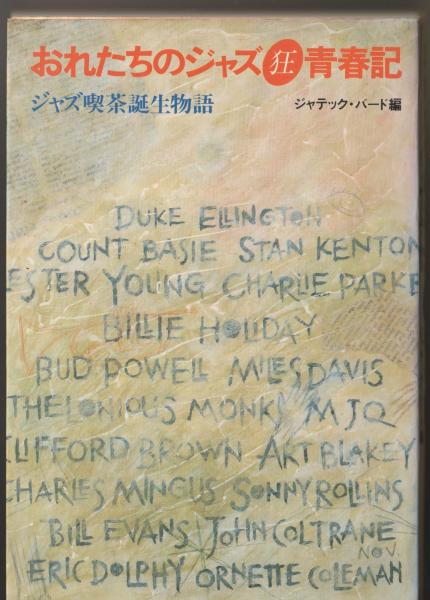 おれたちのジャズ狂青春記
ジャズ喫茶誕生物語
ジャテック・バード編
DUKE ELLINGTON
COUNT BASIE STAN KENTON
ESTER YOUNG CHARLIE PARKE
BILLIE HOLIDAY
BUD POWELL MILES DAVIS
THELONIOUS MONK MJQ
CLIFFORD BROWN ART BLAKEY
CHARLES MINGUS SONNY ROLLINS
BILL EVANS JOHN COLTRANE
NOV.
ERIC DOLPHY ORNETTE COLEMAN